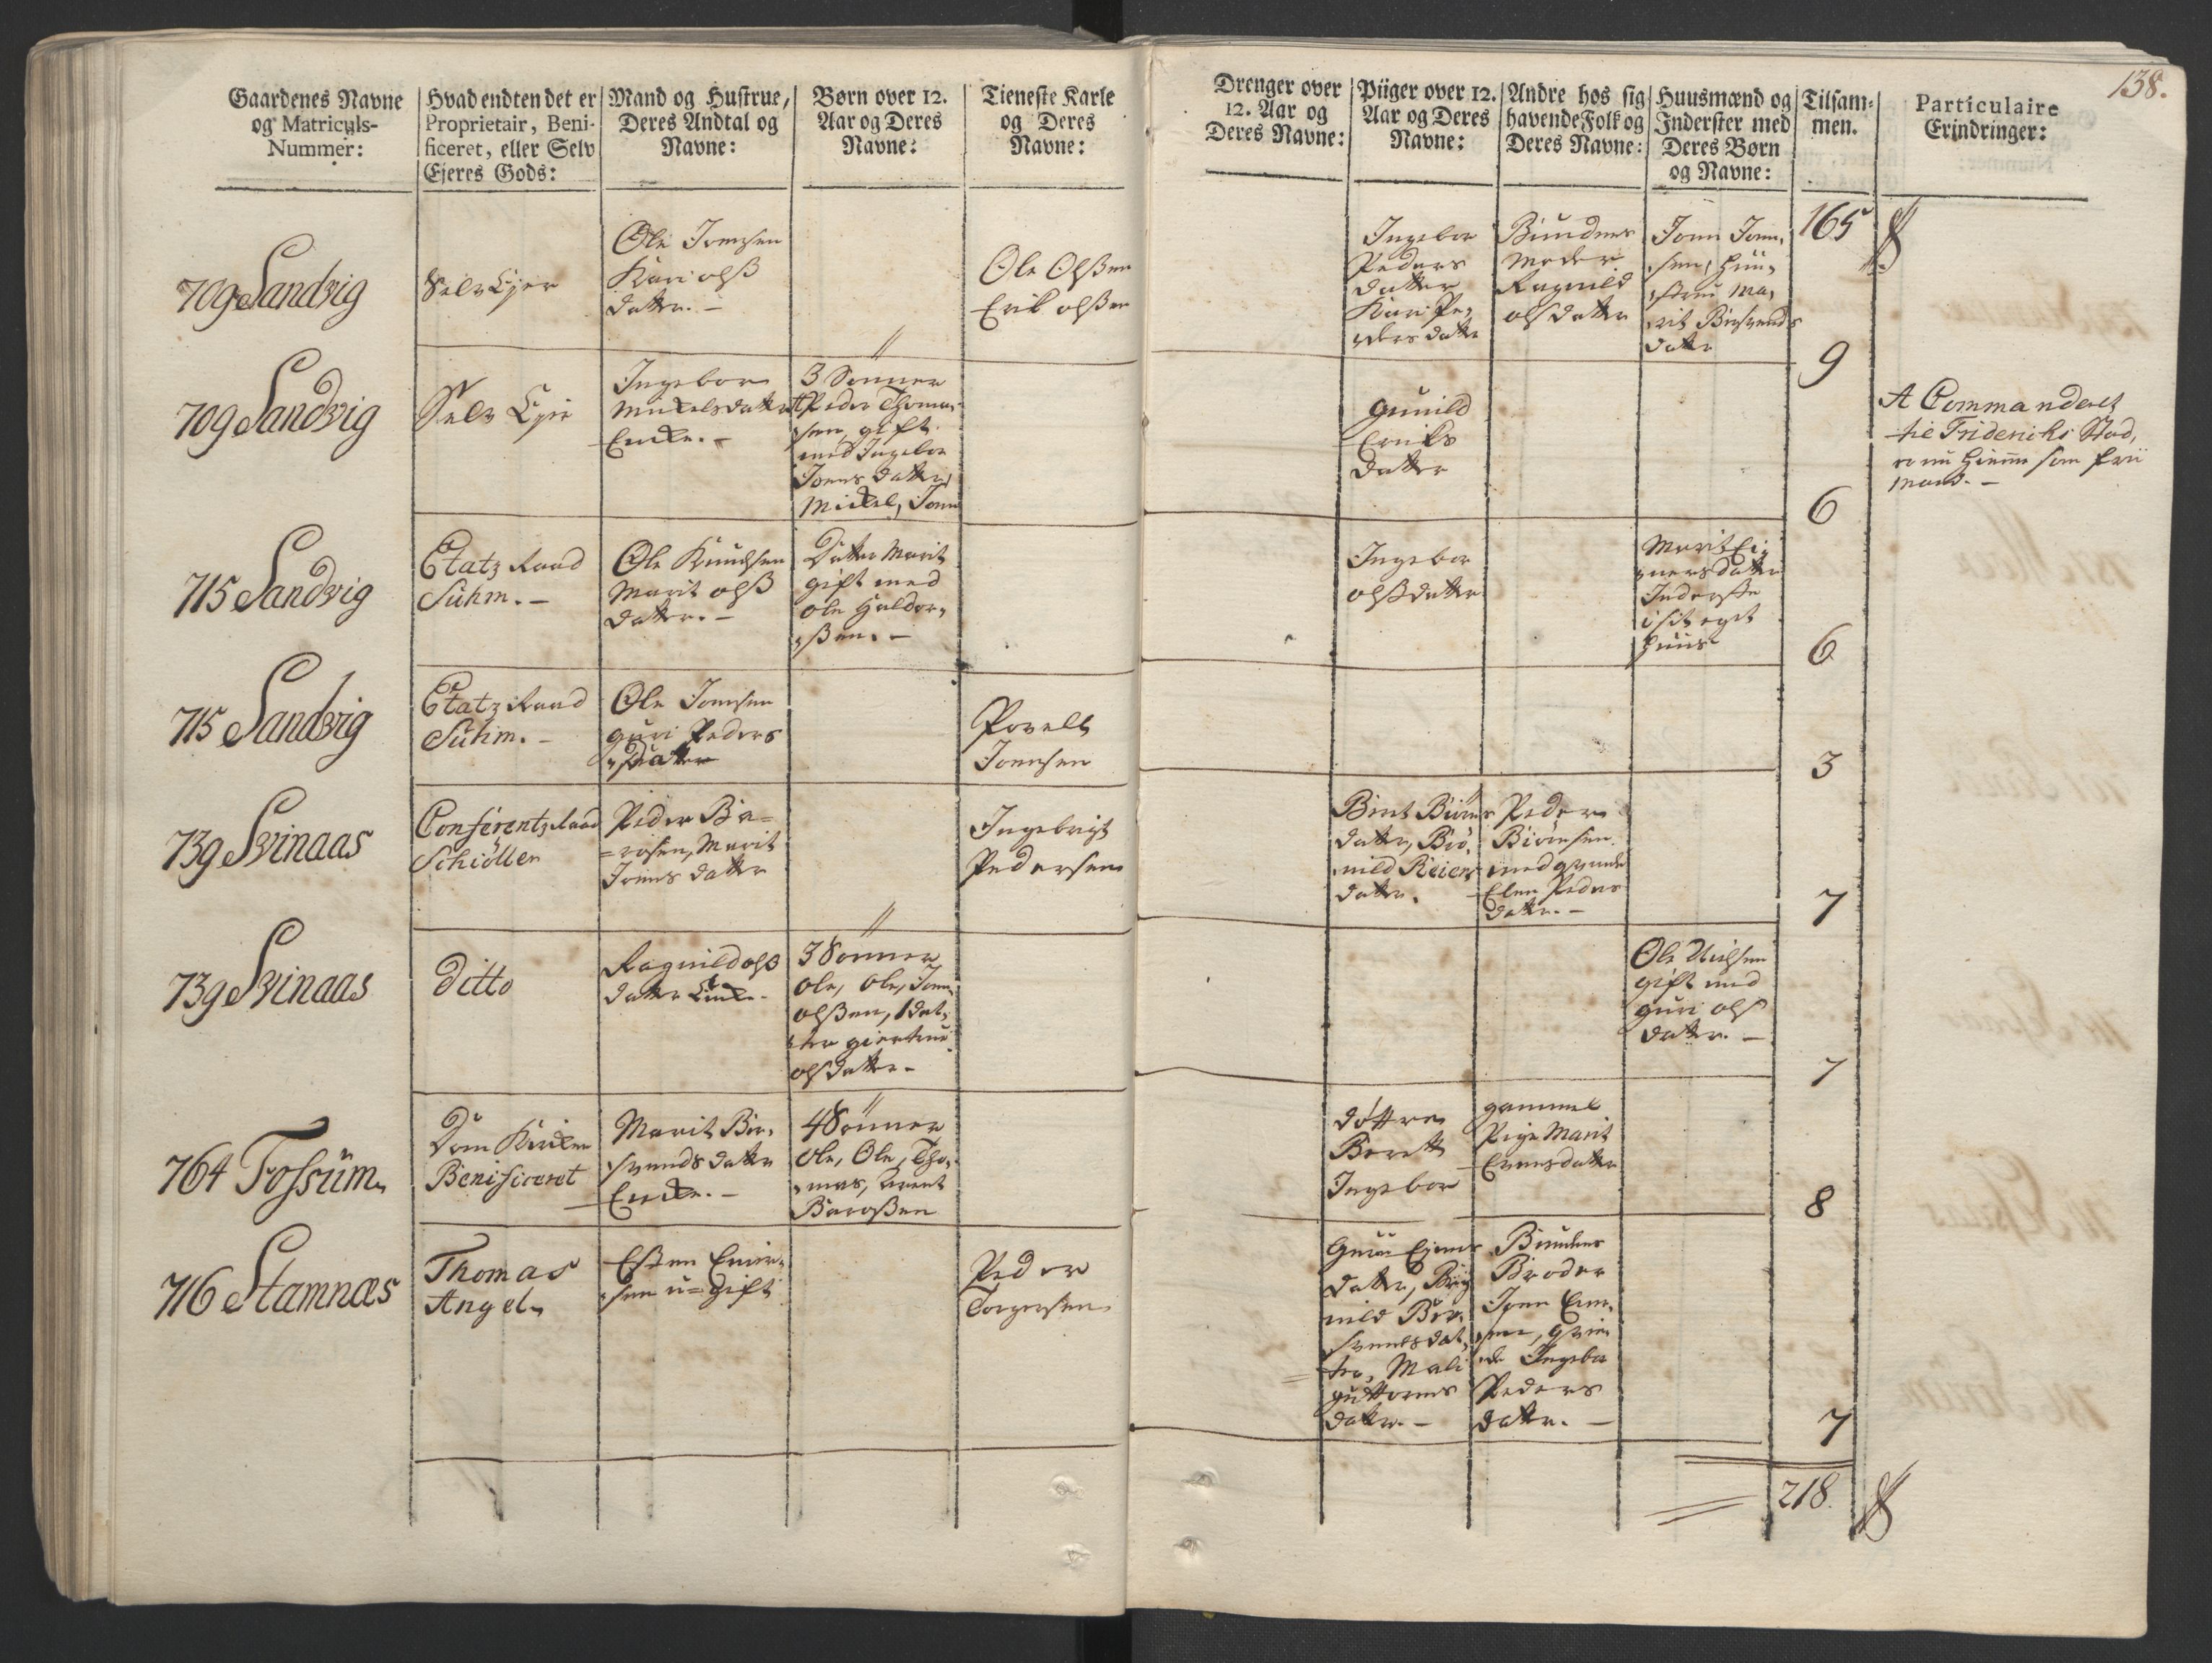 138.
Gaardenes Navne
og Matriculs-
Nummer:
Hvad endten det er
Proprietair, Beni-
ficeret, eller Selv
Ejeres Gods:
Mand og Hustrue,
Deres Andtal og
Navne:
Børn over 12.
Aar og Deres
Navne:
Tieneste Karle
og Deres
Navne:
Drenger over
12. Aar og
Deres Navne:
Piiger over 12.
Aar og Deres
Navne:
Andre hos sig
havende Folk og
Deres Navne:
Huusmænd og
Inderster med
Deres Børn
og Navne:
Tilsam-
men.
Particulaire
Erindringer:
165
709 Sandvig
Selv Ejer
Ole Joensen
Kari olß
datter. -
Ole Olßen
Erik olßen
Ingebor
Peders
datter
Kari Pe,
ders datter
Bundens
Moder
Ragnild
olsdatter
Jonn Jonn,
sen, Huu,
strue Ma,
rit Biersvends
datter
9
709 Sandvig
Selv Ejer
Ingebor
Mickelsdatter
Encke. -
3 Sønner
Peder Thoma,
sen, gift
med Ingebor
Joens datter,
Mickel, Jonn
gunild
Eriks
datter
6
A Commanderet
tie Friderichs Stad,
er nu hiemme som frii
mand. -
715 Sandvig
Etatz Raad
Suhm. -
Ole Knudsen
Marit olß
datter. -
Datter Marit
gift med
ole Haldor,
ßen. -
Ingebor
olßdatter
Marit Ei,
nersdatter
Inderste
i sit eget
huus
6
715 Sandvig
Etatz Raad
Suhm. -
Ole Joensen
guri Peders
datter
Povell
Joensen
3
739 Svinaas
Conferentz Raad
Schiöller
Peder Bie=
=rosen, Marit
Joens datter
Ingebrigt
Pedersen
Berit Biørns
datter, Brø,
nild Reiers
datter.
Peder
Biørnsen.
med qvinde
Elen Peders
datter. -
7
739 Svinaas
Ditto
Ragnild olß
datter Encke.
3 Sønner
Ole, Ole, Jonn
olßen, 1 dat,
ter giertrue
olsdatter -
Ole Nielsen
gift med
guri ols
datter. -
7
764 Fossum
Dom Kircken
Benificeret
Marit Bier,
svends datter
Encke. -
4 Sønner
Ole, Ole, Tho,
mas, Arent
Baroßen
døttre
Berett
Ingebor
gammel
Pige Marit
Evensdatter
8
716 Stamnæs
Thomas
Angel
Esten Einer,
sen u=gift
Peder
Torgersen
Guru Ejners
datter, Bryn
nild Bier,
svendsdat,
ter, Mali
guttorms
datter. -
Bundens
Broder
Joen Einer,
sen, qvin,
de Ingebor
Peders
datter. -
7
218.